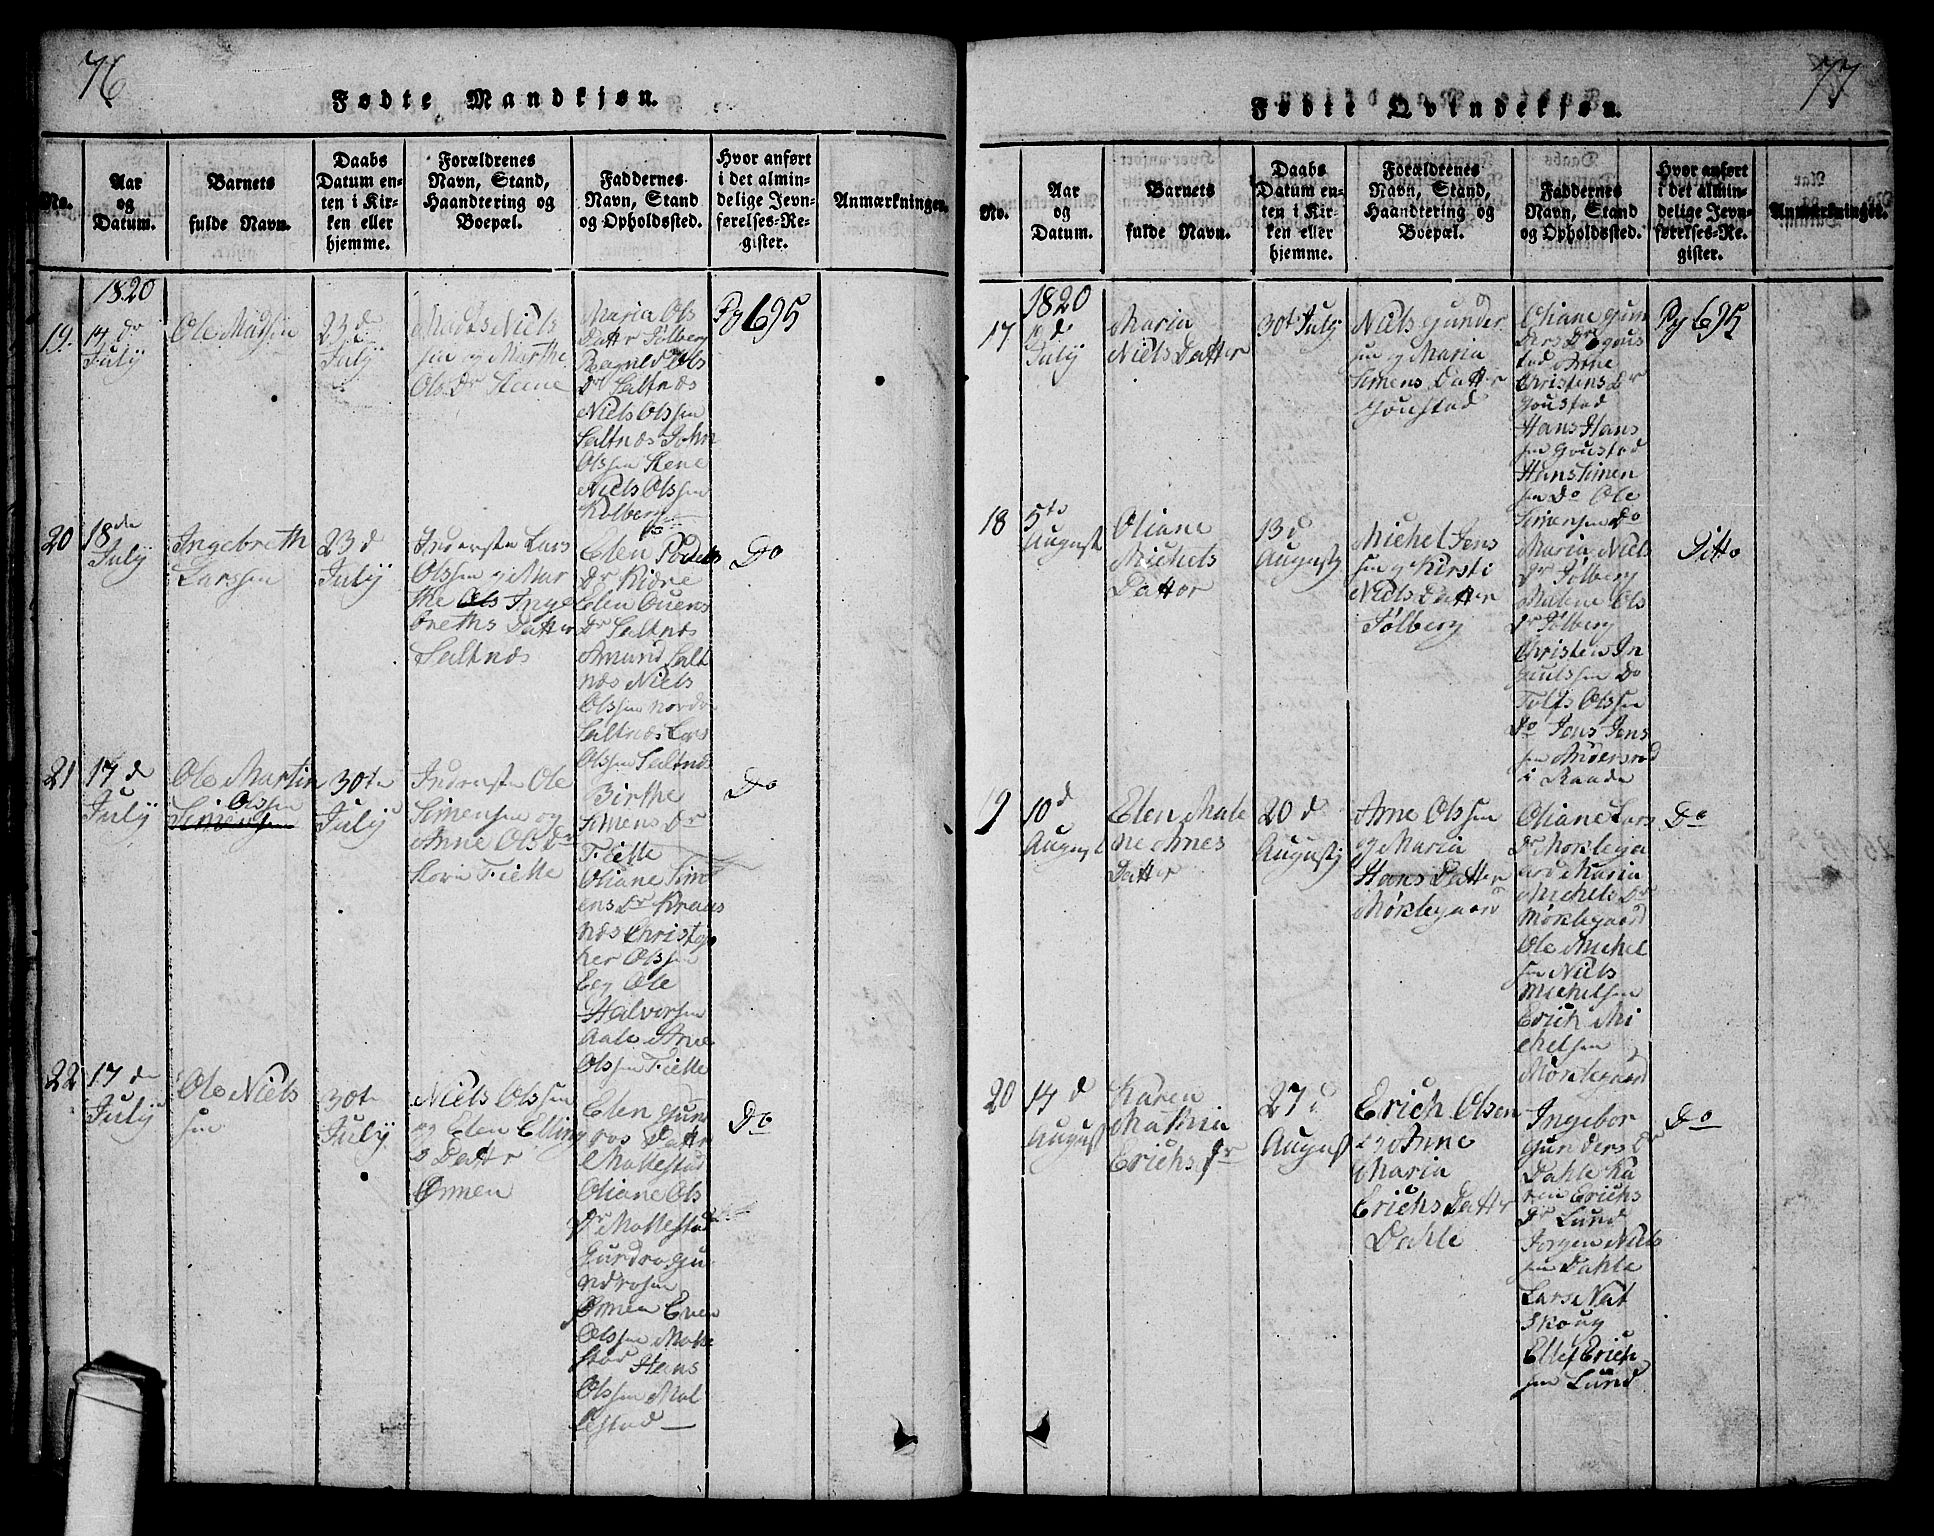 76
Fødte Mandkjøn.
No.
Aar
og
Datum.
Barnets
fulde Navn.
Daabs
Datum en-
ten i Kir-
ken eller
hjemme.
Forældrenes
Navn, Stand,
Haandtering og
Boepæl.
Faddernes
Navn, Stand
og Opholdssted.
Hvor anført
i det almin-
delige Jevn-
førelses-Re-
gister.
Anmærkninger.
1820
19.
14 de
July
Ole Madsen
23 d
July
Mads Niels
sen og Marthe
Ols Dr Stene
Maria Ols
Datter Sølberg
Ragnild Ols
Dr Saltnæs
Niels Olssen
Saltnæs John
Olssen Stene
Niels Olssen
Kolberg
Pg 695
20
18de
July
Ingebreth
Larssen
23 d
July
Inderste Lars
Olssen og Mar
the Ols Inge
breths Datter
Saltnæs
Elen Peders
Dr Kidne
Elen Ouens
Dr Saltnæs
Amund Salt
næs Niels
Olssen nordre
Saltnæs Lars
Olssen Saltnæs
Do
21
17 de
July
Ole Martin
Olssen
Simensen
30te
July
Inderste Ole
Simensen og
Anne Ols Dr
Store Tiette
Birthe
Simens Dr
Tiette
Oliane Sim
ens Dr Kraags
næs Christop
her Olssen
Eeg Ole
Halvorsen
Aale Arne
Olssen Tiette
Do
22
17 de
July
Ole Niels
sen
30te
July
Niels Olssen
og Elen Elling
s Datter
Ørmen
Elen Gund
ros Datter
Mollestad
Oliane Ols
Dr Mollestad
Gundro Gu
ndrosen
Ørmen Even
Olssen Molle
stad Hans
Olssen Mol
lestad
Do
77
Fødte Qvindekjøn.
No.
Aar
og
Datum.
Barnets
fulde Navn.
Daabs
Datum en-
ten i Kir-
ken eller
hjemme.
Forældrenes
Navn, Stand,
Haandtering og
Boepæl.
Faddernes
Navn, Stand
og Opholdssted.
Hvor anført
i det almin-
delige Jevn-
førelses-Re-
gister.
Anmærkninger.
1820
17
12 d
July
Maria
Niels Datter
30te July
Niels Gunder
sen og Maria
Simens Datter
Goustad
Oliane Gun
ders Dr Gous
tad Anne
Christens Dr
Goustad
Hans Hans
sen Goustad
Hans Simen
sen Do Ole
Simensen Do
Pg 695
18
5te
August
Oliane
Michels
Datter
13 d
August
Michel Jens
sen og Kirsti
Niels Datter
Sølberg
Maria Niels
Dr Sølberg
Malene Ols
Dr Sølberg
Christen In
gulssen Do
Tolfs Olssen
Do Jens Jens
sen Andersrod
i Raade
Ditto
19
10d
August
Elen Male
ne Arnes
Datter
20 d
August
Arne Olssen
og Maria
Hans Datter
Mørkegaard
Oliane Lars
Dr Morkega
ard Maria
Michels Dr
Mørkegaard
Ole Michel
sen Niels
Michelsen
Erich Mi
chelsen
Mørkegaard
Do
20
14 d
August
Karen
Mathia
Erichs Dr
27 d
August
Erich Olsen
og Anne
Maria
Erichs Datter
Dahle
Ingebor
Gunders Dr
Dahle Ka
ren Erichs
Dr Lund
Jorgen Niels
sen Dahle
Lars Nat
skoug
Ellef Erich
sen Lund
Do